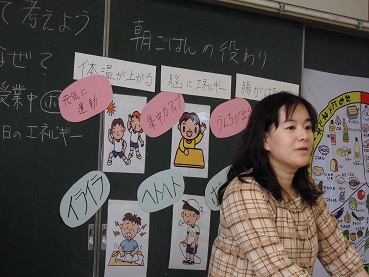 て考えよう
なぜ？
業中
日のエネルギー
朝ごはんの役わり
体温が上がる
脳にエネルギー
腸が
元気に
運動
集中力アップ
うんちが出
イライラ
ヘトヘト